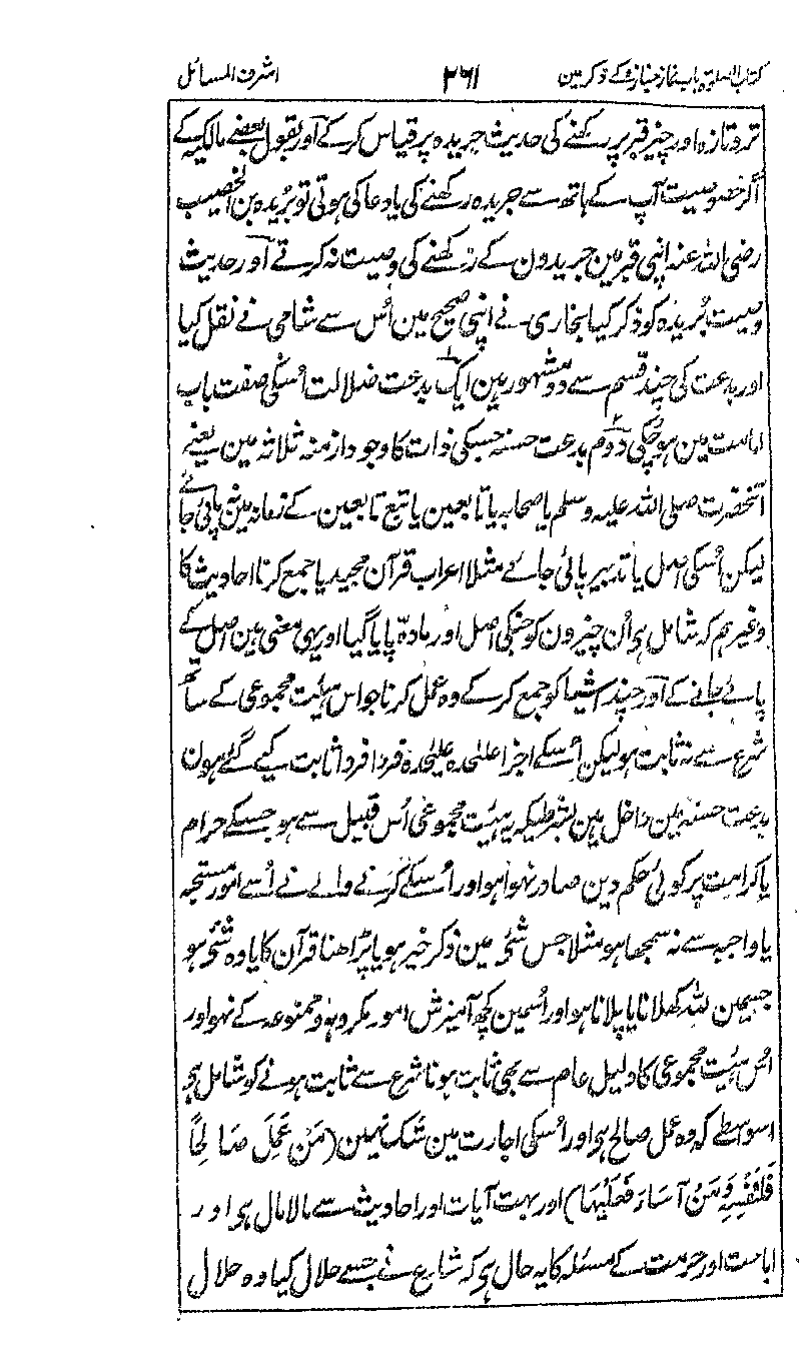 کتاب الصلوۃ باب نماز جنازہ کے ذکر مین ۲۶۱ اشرف المسائل
تروتازہ اور چیز قبر پر رکھنے کی حدیث جریدہ پر قیاس کرکے اور بقول بعضے مالکیہ کے
اگر خصوصیت آپ کے ہاتھ سے جریدہ رکھنے کی یا دعا کی ہوتی تو بُریدہ بن الخصیب
رضی اللہ عنہ اپنی قبر مین جریدون کے رکھنے کی وصیت نہ کرتے اور حدیث
وصیت بُریدہ کو ذکر کیا بخاری نے اپنی صحیح مین اُس سے شامی نے نقل کیا
اور بدعت کی چند قسم سے دو مشہور ہین ایک بدعت ضلالت اُسکی صفت باب
امامت مین ہو چکی دوم بدعت حسنہ جسکی ذات کا وجود ازمنہ ثلاثہ مین یعنے
آنحضرت صلی اللہ علیہ وسلم یا صحابہ یا تابعین یا تبع تابعین کے زمانہ مین نہ پائی جائے
لیکن اُسکی اصل یا تدبیر پائی جائے مثلا اعراب قرآن مجید یا جمع کرنا احادیث کا
وغیرہم کہ شامل ہی اُن چیزون کو جنکی اصل اور مادہ پایا گیا اور یہی معنی ہین اصل کے
پائے جانے کے اور چند اشیا کو جمع کرکے وہ عمل کرنا جو اس ہیئت مجموعی کے ساتھ
شرع سے نہ ثابت ہو لیکن اُسکے اجزا علیحدہ علیحدہ فردا فردا ثابت کیے گئے ہون
بدعت حسنہ مین داخل ہین بشرطیکہ یہ ہیئت مجموعی اُس قبیل سے ہو جسکے حرام
یا کراہت پر کوئی حکم دین صادر نہوا ہو اور اُسکے کرنے والے نے اُسے امور مستحبہ
یا واجبہ سے نہ سمجھا ہو مثلا جس شئ مین ذکر خیر ہو یا پڑاھنا قرآن کا یا وہ شئ ہو
جسمین للہ کھلانا یا پلانا ہو اور اُسمین کچھ آمیزش امور مکروہہ و ممنوعہ کے نہو اور
اُس ہیئت مجموعی کا دلیل عام سے بھی ثابت ہونا شرع سے ثابت ہونے کو شامل ہی
اسواسطے کہ وہ عمل صالح ہی اور اُسکی اجازت مین شک نہین (مَنْ عَمِلَ صَالِحًا
فَلِنَفْسِہِ وَمَنْ آسَاءَ فَعَلَیْہَا) اور بہت آیات اور احادیث سے مالامال ہی اور
اباحت اور حرمت کے مسئلہ کا یہ حال ہی کہ شارع نے جسے حلال کیا وہ حلال